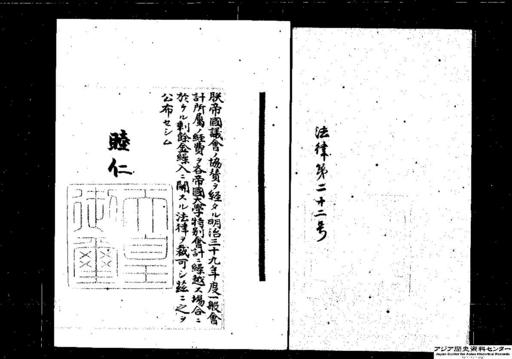 法律第二十二号
朕帝國議會ノ協賛ヲ経タル明治三十九年度一般會
計所屬ノ経費ヲ各帝國大學特別會計ニ繰越ス場合ニ
於ケル剰餘金繰入ニ関スル法律ヲ裁可シ茲ニ之ヲ
公布セシム
睦仁
天皇
御璽
アジア歴史資料センター
Japan Center for Asian Historical Records